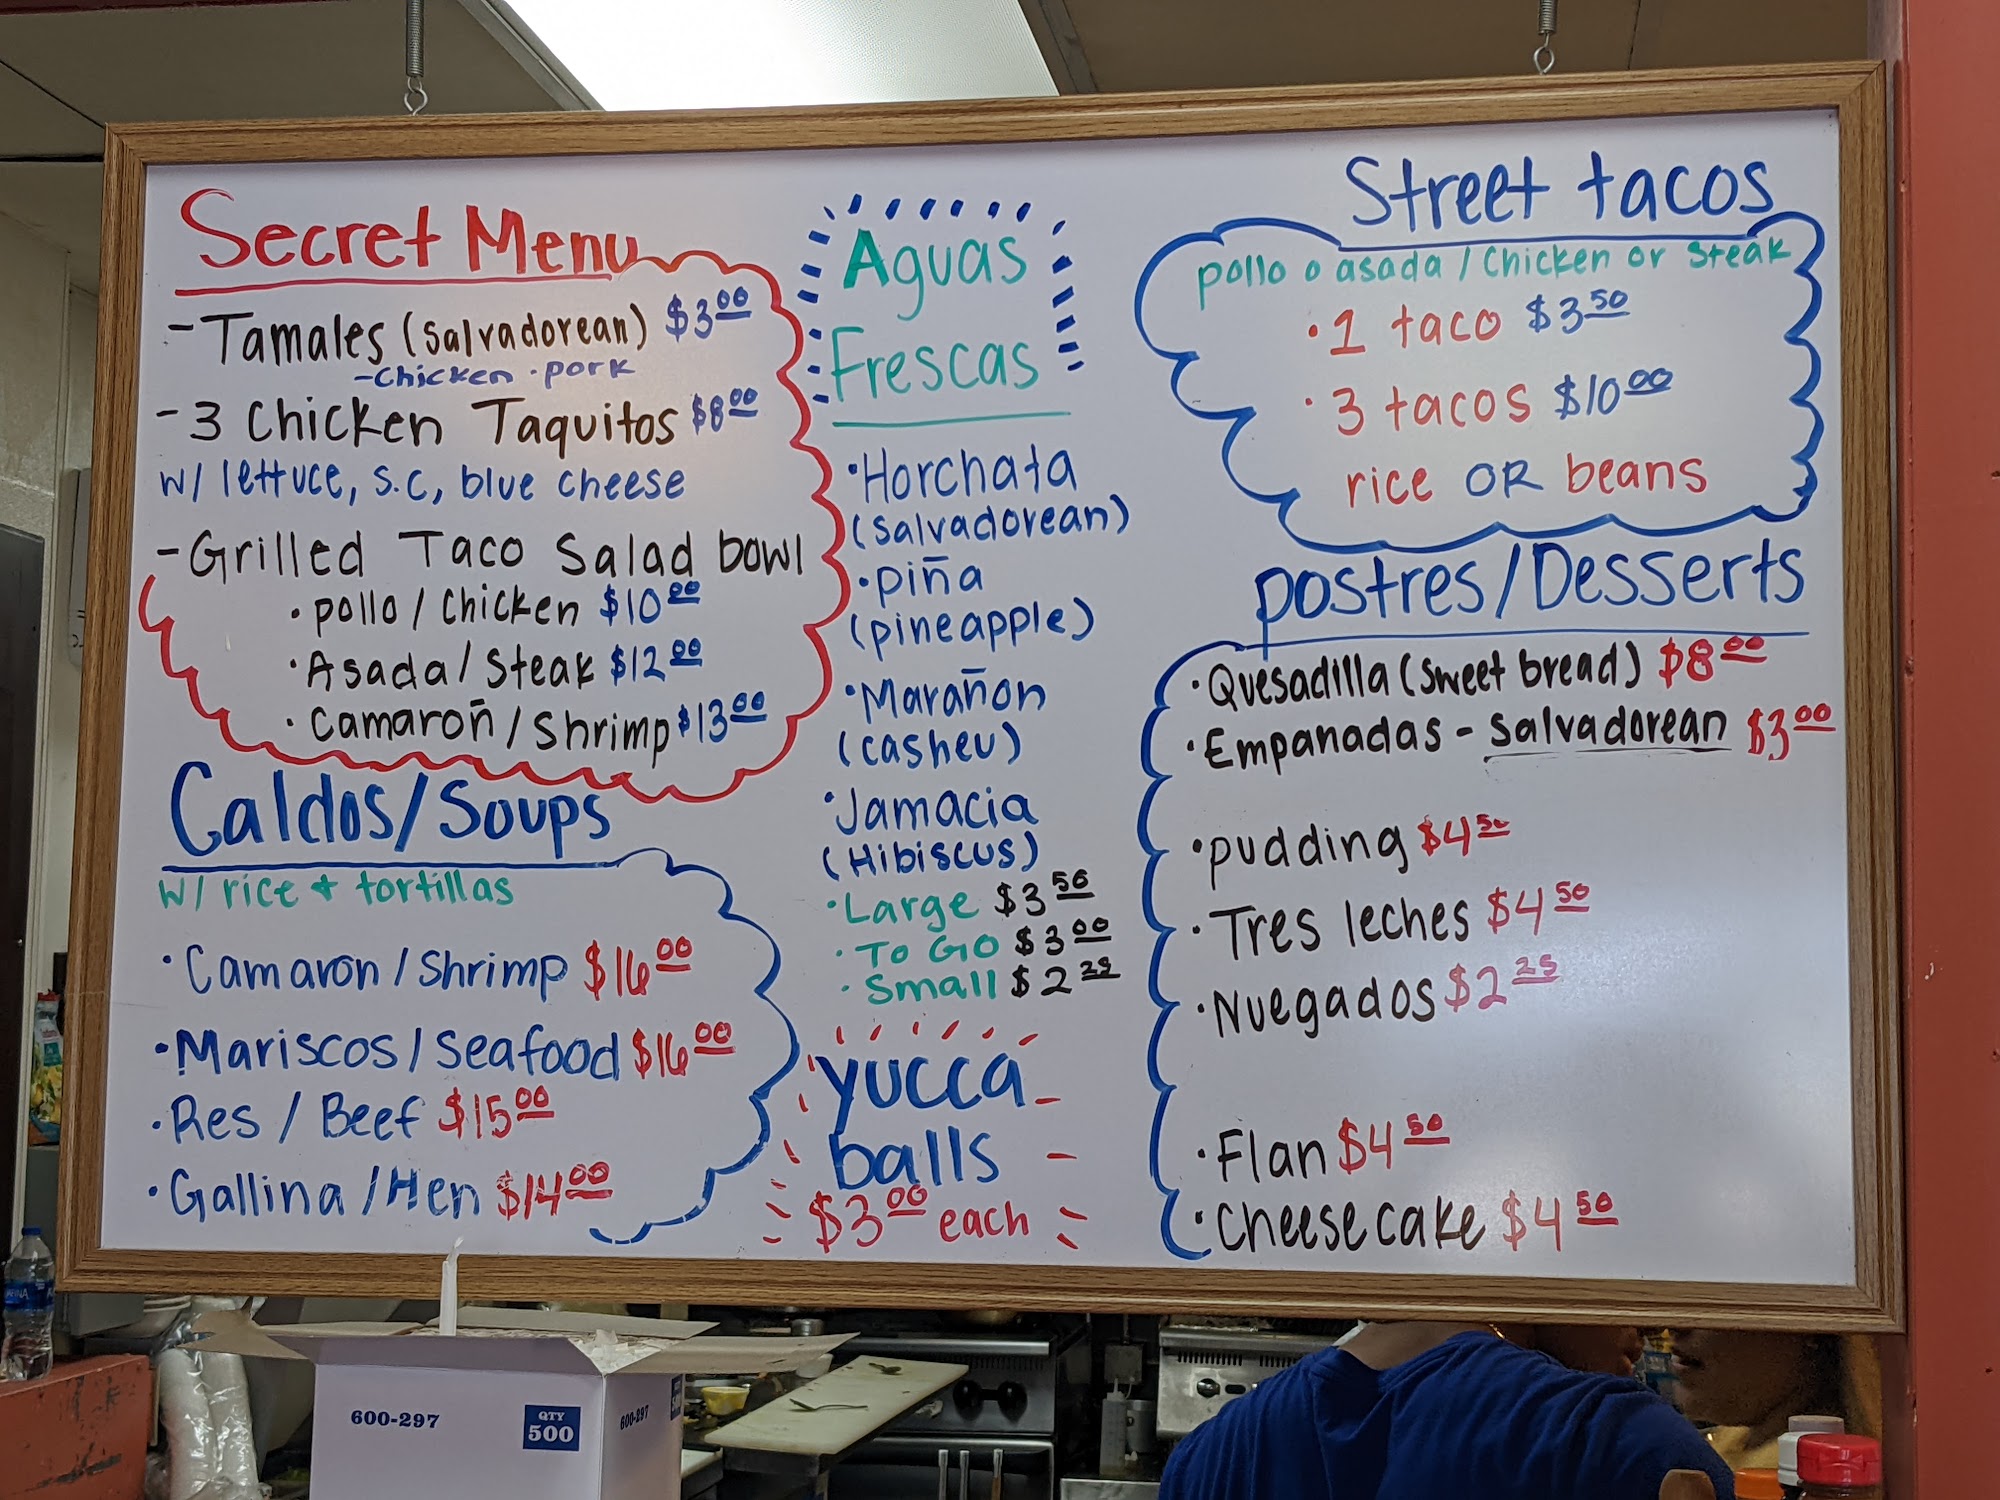 Secret Menu
- Tamales (Salvadorean) $3.00
- Chicken · pork
- 3 Chicken Taquitos $8.00
w/ lettuce, s.c, blue cheese
- Grilled Taco Salad bowl
· pollo / Chicken $10.00
· Asada / Steak $12.00
· Camaroñ / Shrimp $13.00
Caldos/Soups
w/ rice + tortillas
· Camaron / Shrimp $16.00
· Mariscos / Seafood $16.00
· Res / Beef $15.00
· Gallina / Hen $14.00
Aguas
Frescas
· Horchata
(Salvadorean)
· piña
(pineapple)
· Marañon
(casheu)
· Jamacia
(Hibiscus)
· Large $3.50
· To Go $3.00
· Small $2.25
yucca
balls
$3.00 each
Street tacos
pollo o asada / Chicken or Steak
· 1 taco $3.50
· 3 tacos $10.00
rice OR beans
postres/Desserts
· Quesadilla (sweet bread) $8.00
· Empanadas - Salvadorean $3.00
· pudding $4.50
· Tres leches $4.50
· Nuegados $2.25
· Flan $4.50
· Cheese cake $4.50
600-297
QTY
500
600-297